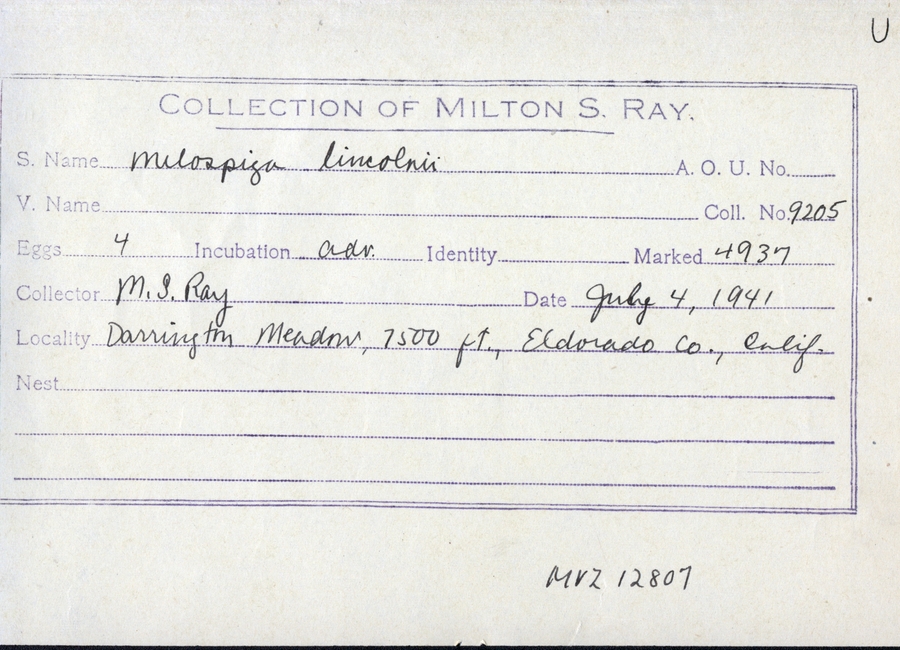 U
COLLECTION OF MILTON S. RAY.
S. Name Melospiza lincolnii A. O. U. No.
V. Name Coll. No. 9205
Eggs 4 Incubation adv. Identity Marked 4937
Collector M. S. Ray Date July 4, 1941
Locality Darrington Meadow, 7500 ft., Eldorado Co., Calif.
Nest
MVZ 12807